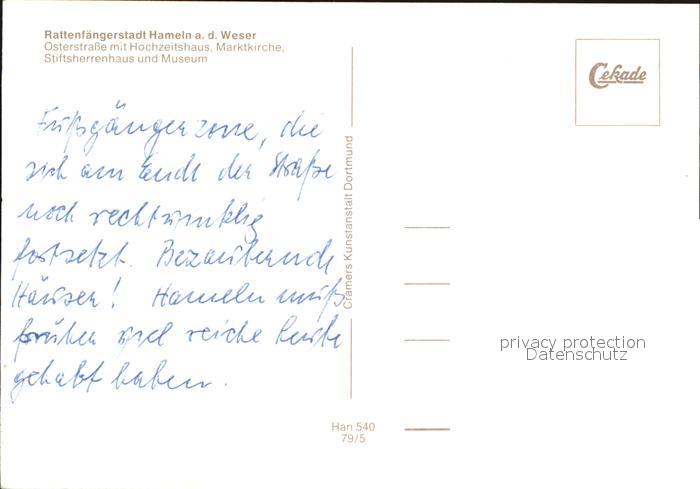 Rattenfängerstadt Hameln a. d. Weser
Osterstraße mit Hochzeitshaus, Marktkirche,
Stiftsherrenhaus und Museum
Cekade
Fußgängerzone, die
sich am Ende der Straße
noch rechtwinklig
fortsetzt. Bezaubernde
Häuser! Hameln muß
früher viel reiche Leute
gehabt haben.
Cramers Kunstanstalt Dortmund
privacy protection
Datenschutz
Han 540
79/5